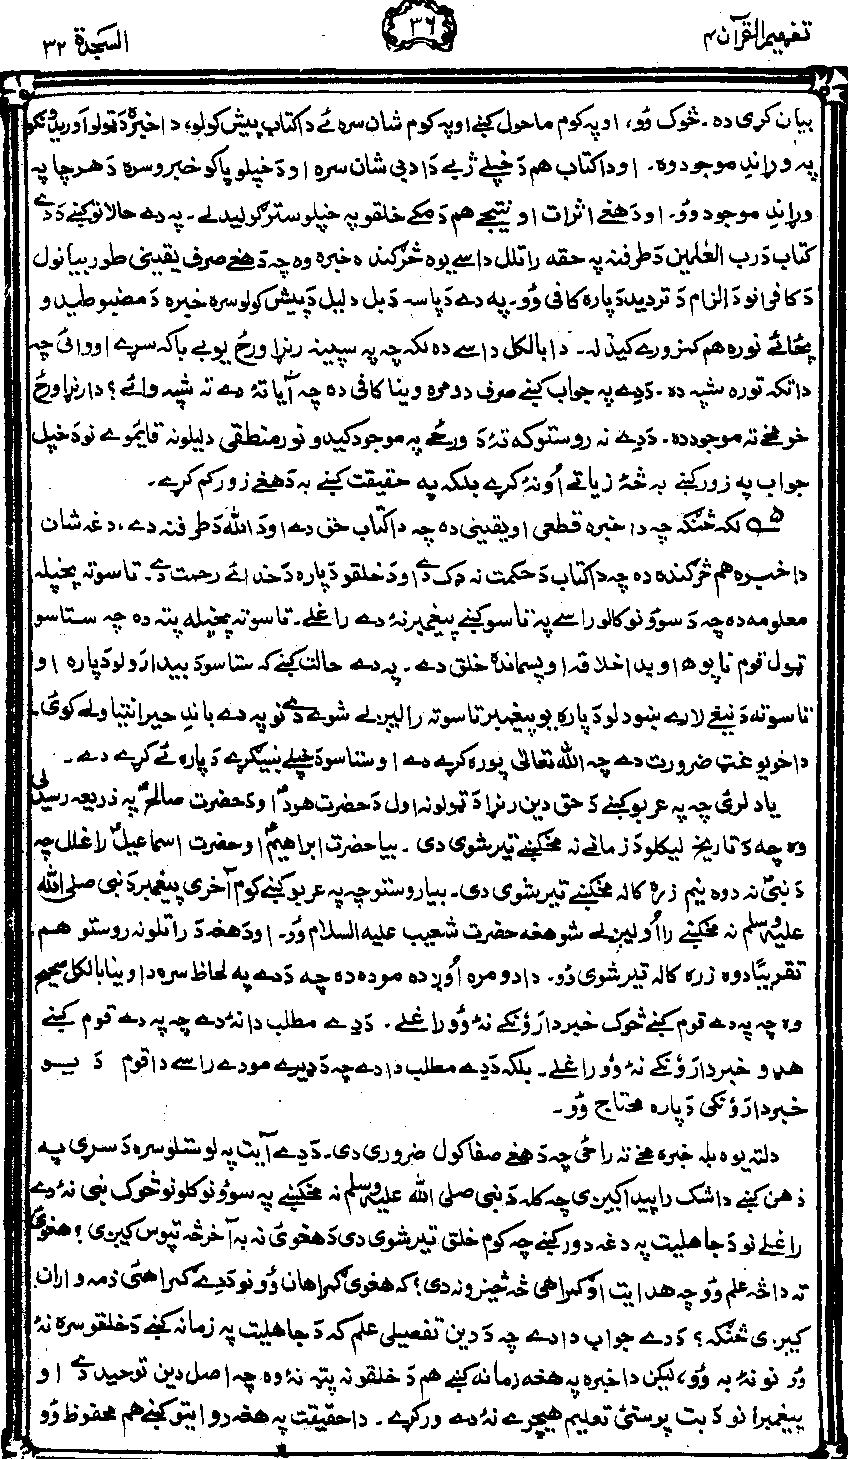 تفہیم القرآن ۴
۳۶
السجدۃ ۳۲
بیان کری ده۔ څوک وُو، او په کوم ماحول کښے او په کوم شان سره ئے دا کتاب پیش کولو، دا خبره د ټولو اوریدونکو
په وړاندے موجود وه۔ او دا کتاب هم د خپلے ژبے د ادبی شان سره او د خپلو پاکو خبرو سره د هر چا په
وړاندے موجود وُو۔ او د هغے اثرات او نتیجے هم د مکے خلقو په خپلو سترګو لیدلے۔ په دے حالاتو کښے د دے
کتاب د رب العٰلمین د طرفنه په حقه راتلل داسے یوه څرګنده خبره وه چه د هغے صرف یقینی طور بیانول
د کافرانو د الزام د تردید دپاره کافی وُو۔ په دے دپاسه د بل دلیل د پیش کولو سره خبره د مضبوطیدو
پځائے نوره هم کمزورے کیدله۔ دا بالکل داسے ده لکه چه په سپینه رنړا ورځ یو بے باکه سرے اووائی چه
دا تکه توره شپه ده۔ د دے په جواب کښے صرف دومره وینا کافی ده چه آیا تهٔ دے ته شپه وائے؟ دا رنړا ورځ
خو مخے ته موجود ده۔ د دے نه روستو که تهٔ د ورځے په موجودګیدو نور منطقی دلیلونه قایموے نو د خپل
جواب په زور کښے به څهٔ زیاتے اونهٔ کړے بلکه په حقیقت کښے به د هغے زور کم کړے۔
۵ لکه څنګه چه دا خبره قطعی او یقینی ده چه دا کتاب حق دے او د اللّٰه د طرفنه دے، دغه شان
دا خبره هم څرګنده ده چه دا کتاب د حکمت نه ډک دے او د خلقو دپاره د خدائے رحمت دے۔ تاسو ته پخپله
معلومه ده چه د سوؤنو کالو راسے په تاسو کښے پیغمبر نهٔ دے راغلے۔ تاسو ته پخپله پته ده چه ستاسو
ټول قوم ناپوهه او بد اخلاقه او پسمانده خلق دے۔ په دے حالت کښے که ستاسو د بیدارولو دپاره او
تاسو ته د نیغے لارے ښودلو دپاره یو پیغمبر تاسو ته رالیږلے شوے دے نو په دے باندے حیرانتیا ولے کوئ۔
دا خو یو غټ ضرورت دے چه اللّٰه تعالیٰ پوره کړے دے او ستاسو د خپلے ښیګړے دپاره ئے کړے دے۔
یاد لری چه په عربو کښے د حق دین رنړا د ټولو نه اول د حضرت هودؑ او د حضرت صالحؑ په ذریعه رسیدلی
وه چه د تاریخ لیکلو د زمانے نه مخکښے تیر شوی دی۔ بیا حضرت ابراهیمؑ او حضرت اسماعیلؑ راغلل چه
د نبیؐ نه دوه نیم زره کاله مخکښے تیر شوی دی۔ بیا روستو چه په عربو کښے کوم آخری پیغمبر د نبی صلی اللّٰه
علیه وسلم نه مخکښے را اولیږلے شو هغه حضرت شعیب علیه السلام وُو۔ او د هغه د راتلو نه روستو هم
تقریبًا دوه زره کاله تیر شوی وُو۔ دا دومره اُوږده موده ده چه د دے په لحاظ سره دا وینا بالکل صحیح
وه چه په دے قوم کښے څوک خبردارؤنکے نهٔ وُو راغلے۔ د دے مطلب دا نهٔ دے چه په دے قوم کښے
هډو خبردارؤنکے نهٔ وُو راغلے۔ بلکه د دے مطلب دا دے چه د ډیرے مودے راسے دا قوم د یو
خبردارؤنکی دپاره محتاج وُو۔
دلته یوه بله خبره مخے ته راځی چه د هغے صفا کول ضروری دی۔ د دے آیت په لوستلو سره د سړی په
ذهن کښے دا شک راپیدا کیږی چه کله د نبی صلی اللّٰه علیه وسلم نه مخکښے په سوؤنو کلونو څوک نبی نهٔ دے
راغلے نو د جاهلیت په دغه دور کښے چه کوم خلق تیر شوی دی د هغوئ نه به آخر څه تپوس کیږی؟ هغوئ
ته دا څه علم وُو چه هدایت او ګمراهی څه څیزونه دی؟ که هغوئ ګمراهان وُو نو د دے ګمراهئ ذمه واران
کیږی څنګه؟ د دے جواب دا دے چه د دین تفصیلی علم که د جاهلیت په زمانه کښے د خلقو سره نهٔ
وُو نو نهٔ به وُو، لیکن دا خبره په هغه زمانه کښے هم د خلقو نه پټه نهٔ وه چه اصل دین توحید دے او
پیغمبرانو د بت پرستئ تعلیم هیچرے نهٔ دے ورکړے۔ دا حقیقت په هغه روایتو کښے هم محفوظ وُو